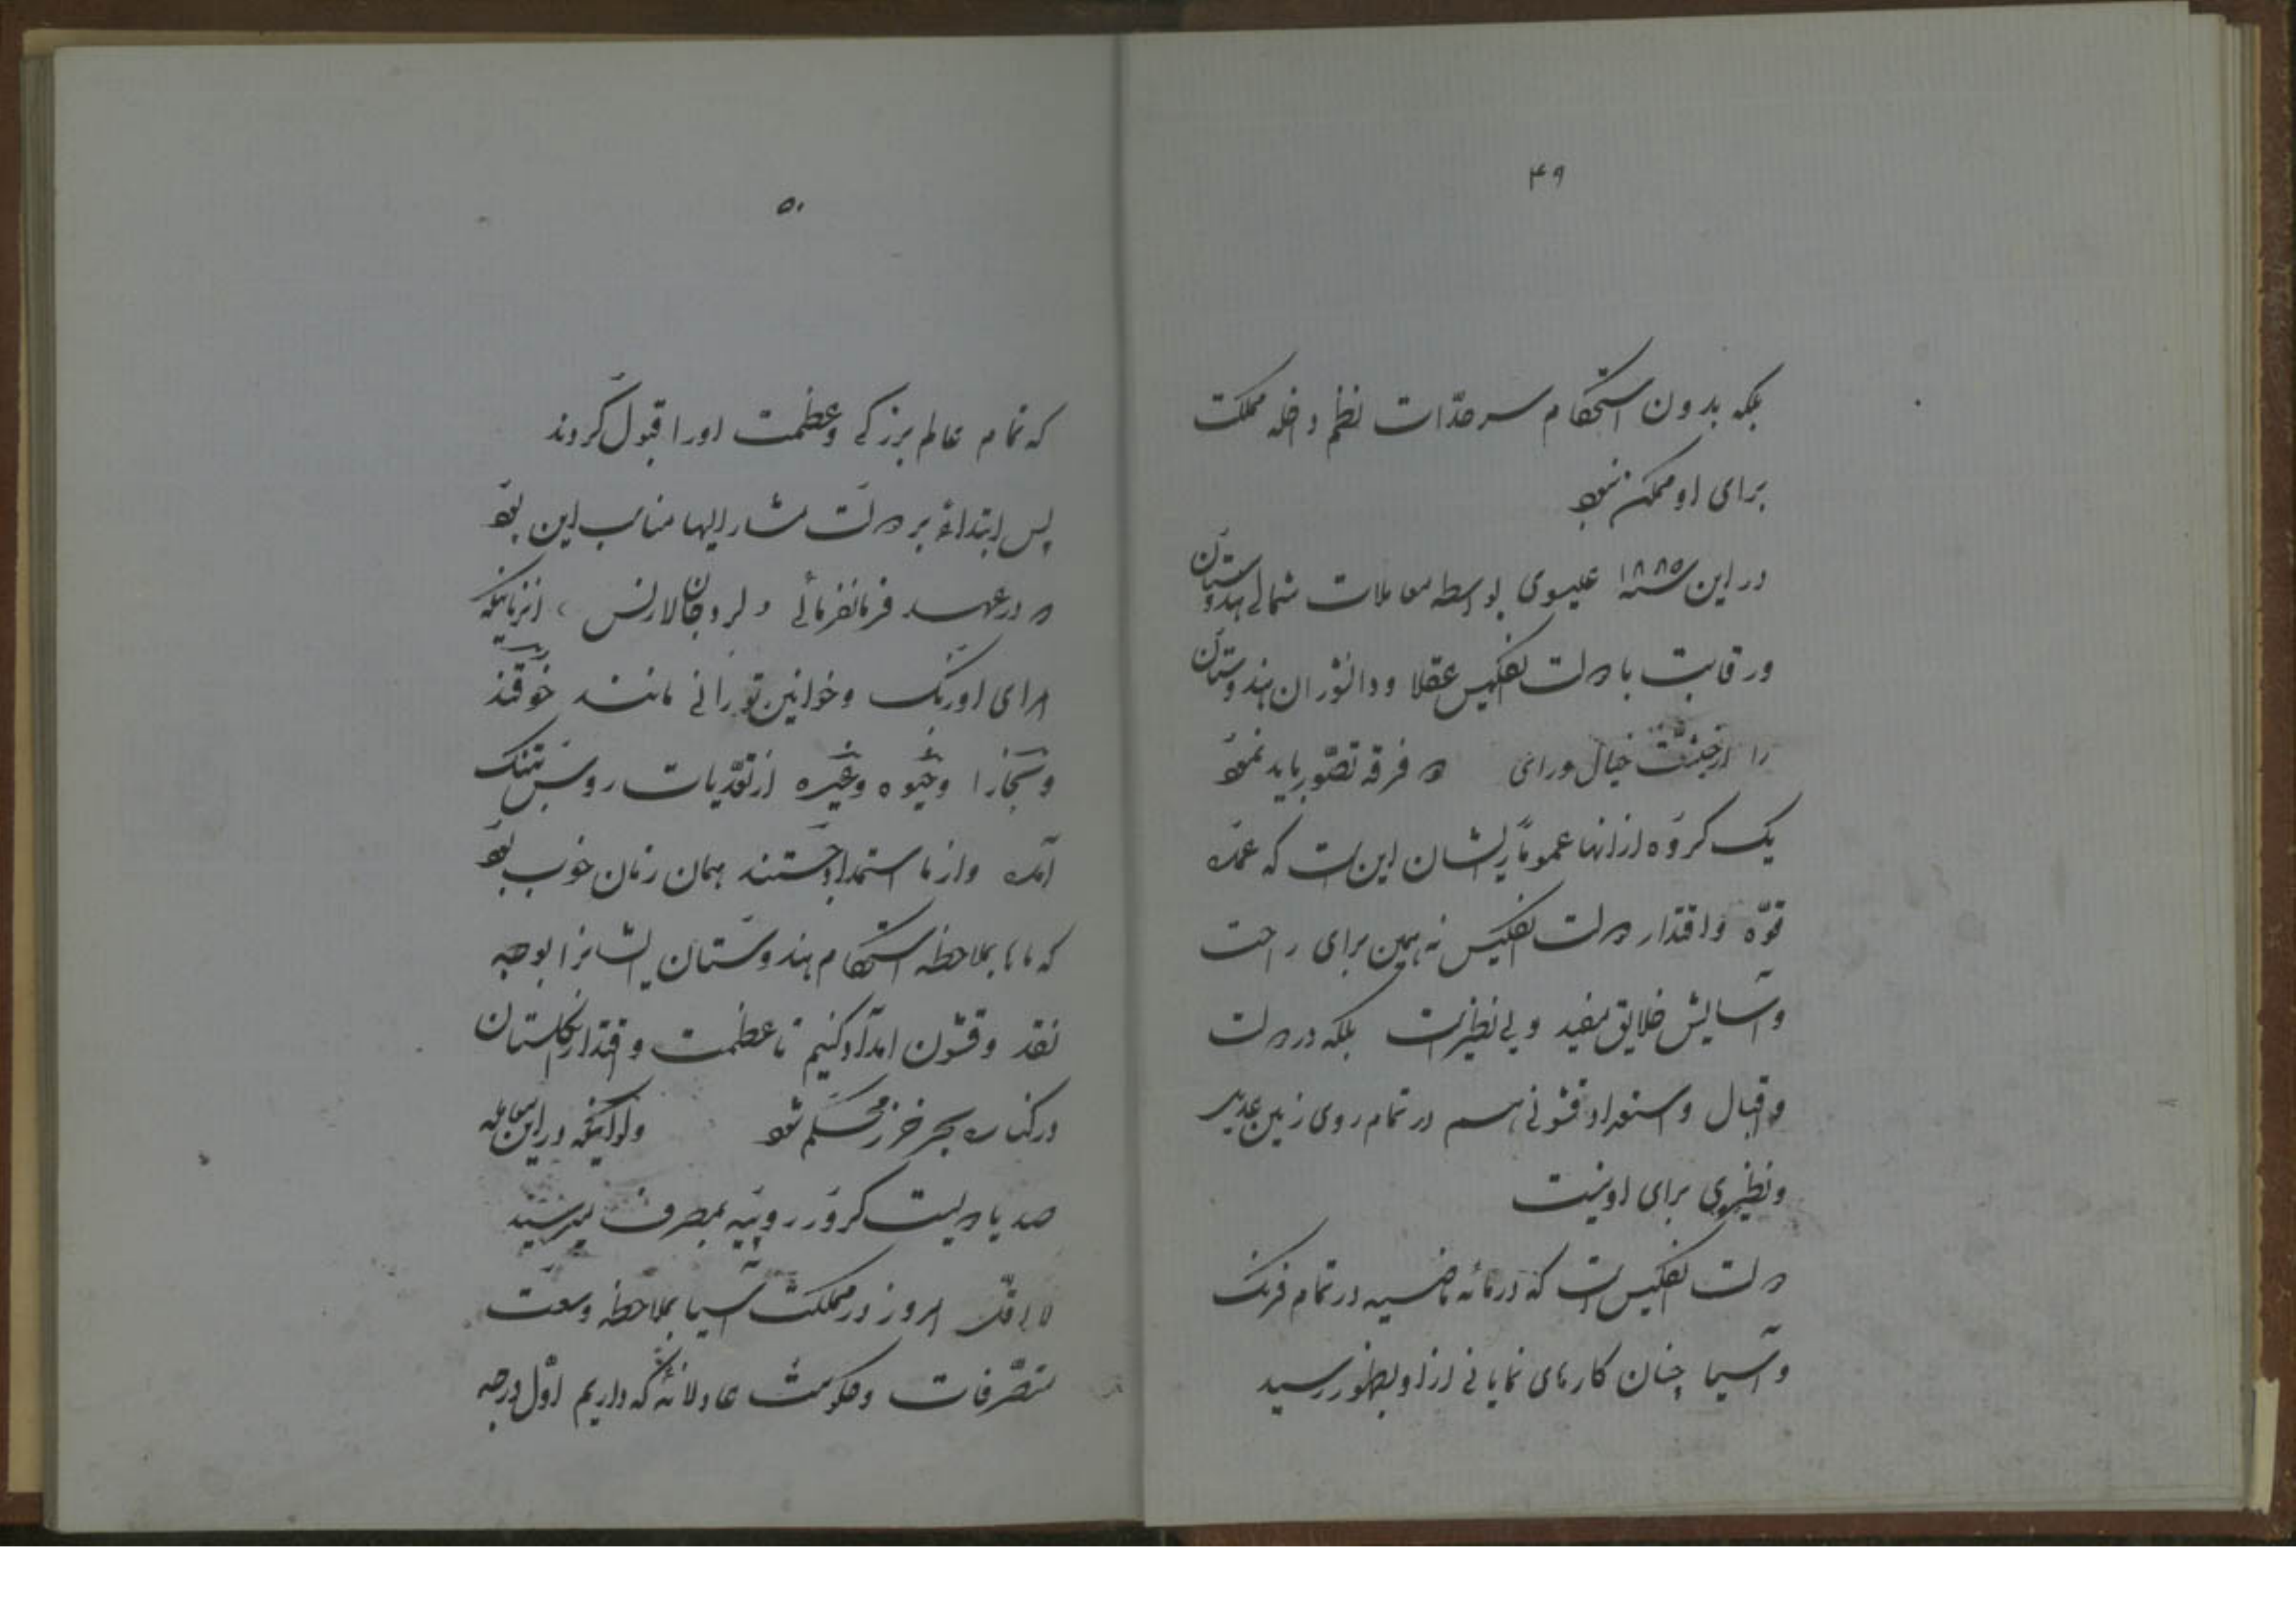 ۴۹
بلکه بدون استحکام سرحدّات نظم داخله مملکت
برای او ممکن نبود
در این سنه ۱۸۸۵ عیسوی بواسطه معاملات شمالی هندوستان
و رقابت با دولت انگلیس عقلا و دانشوران هندوستان
را از حیثیّت خیال و رای دو فرقه تصوّر باید نمود
یک گروه از انها عموماً رایشان این است که عمده
قوّه و اقتدار دولت انگلیس نه همین برای راحت
و آسایش خلایق مفید و بی نظیر است بلکه در دولت
و اقبال و استعداد قشونی هم در تمام روی زمین عدیل
و نظیری برای او نیست
دولت انگلیس است که در مائه ماضیه در تمام فرنگ
و آسیا چنان کارهای نمایانی از او بظهور رسید
۵۰
که تمام عالم بزرگی و عظمت اورا قبول کردند
پس ابتداءً بر دولت مشارالیها مناسب این بود
در عهد فرمانفرمائی لرد جان لارنس از زمانیکه
امرای اوزبک و خوانین تورانی مانند خوقند
و بخارا و خیوه و غیره از تعدّیات روس بتنگ
آمده و از ما استمداد جستند همان زمان خوب بود
که ماها بملاحظه استحکام هندوستان ایشانرا بوجه
نقد و قشون امداد کنیم تا عظمت و اقتدار انگلستان
در کناره بحر خزر مستحکم شود ولو اینکه در این معامله
صد یا دویست کرور روپیه بمصرف میرسید
لااقل امروز در مملکت آسیا بملاحظه وسعت
متصرّفات و حکومت عادلانهٔ که داریم اوّل درجه